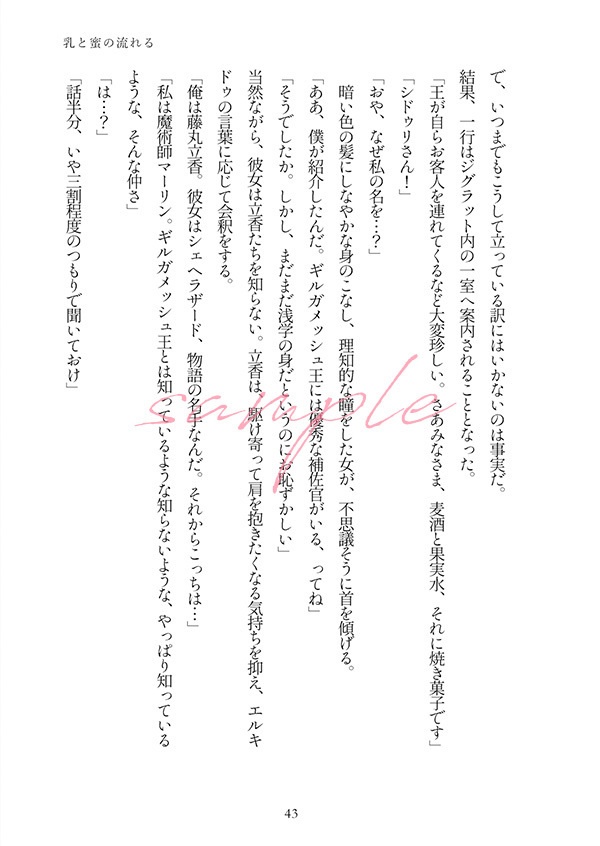 乳と蜜の流れる
で、いつまでもこうして立っている訳にはいかないのは事実だ。
結果、一行はジグラット内の一室へ案内されることとなった。
「王が自らお客人を連れてくるなど大変珍しい。さあみなさま、麦酒と果実水、それに焼き菓子です」
「シドゥリさん！」
「おや、なぜ私の名を…？」
暗い色の髪にしなやかな身のこなし、理知的な瞳をした女が、不思議そうに首を傾げる。
「ああ、僕が紹介したんだ。ギルガメッシュ王には優秀な補佐官がいる、ってね」
「そうでしたか。しかし、まだまだ浅学の身だというのにお恥ずかしい」
当然ながら、彼女は立香たちを知らない。立香は、駆け寄って肩を抱きたくなる気持ちを抑え、エルキ
ドゥの言葉に応じて会釈をする。
「俺は藤丸立香。彼女はシェヘラザード、物語の名手なんだ。それからこっちは…」
「私は魔術師マーリン。ギルガメッシュ王とは知っているような知らないような、やっぱり知っている
ような、そんな仲さ」
「は…？」
「話半分、いや三割程度のつもりで聞いておけ」
sample
43